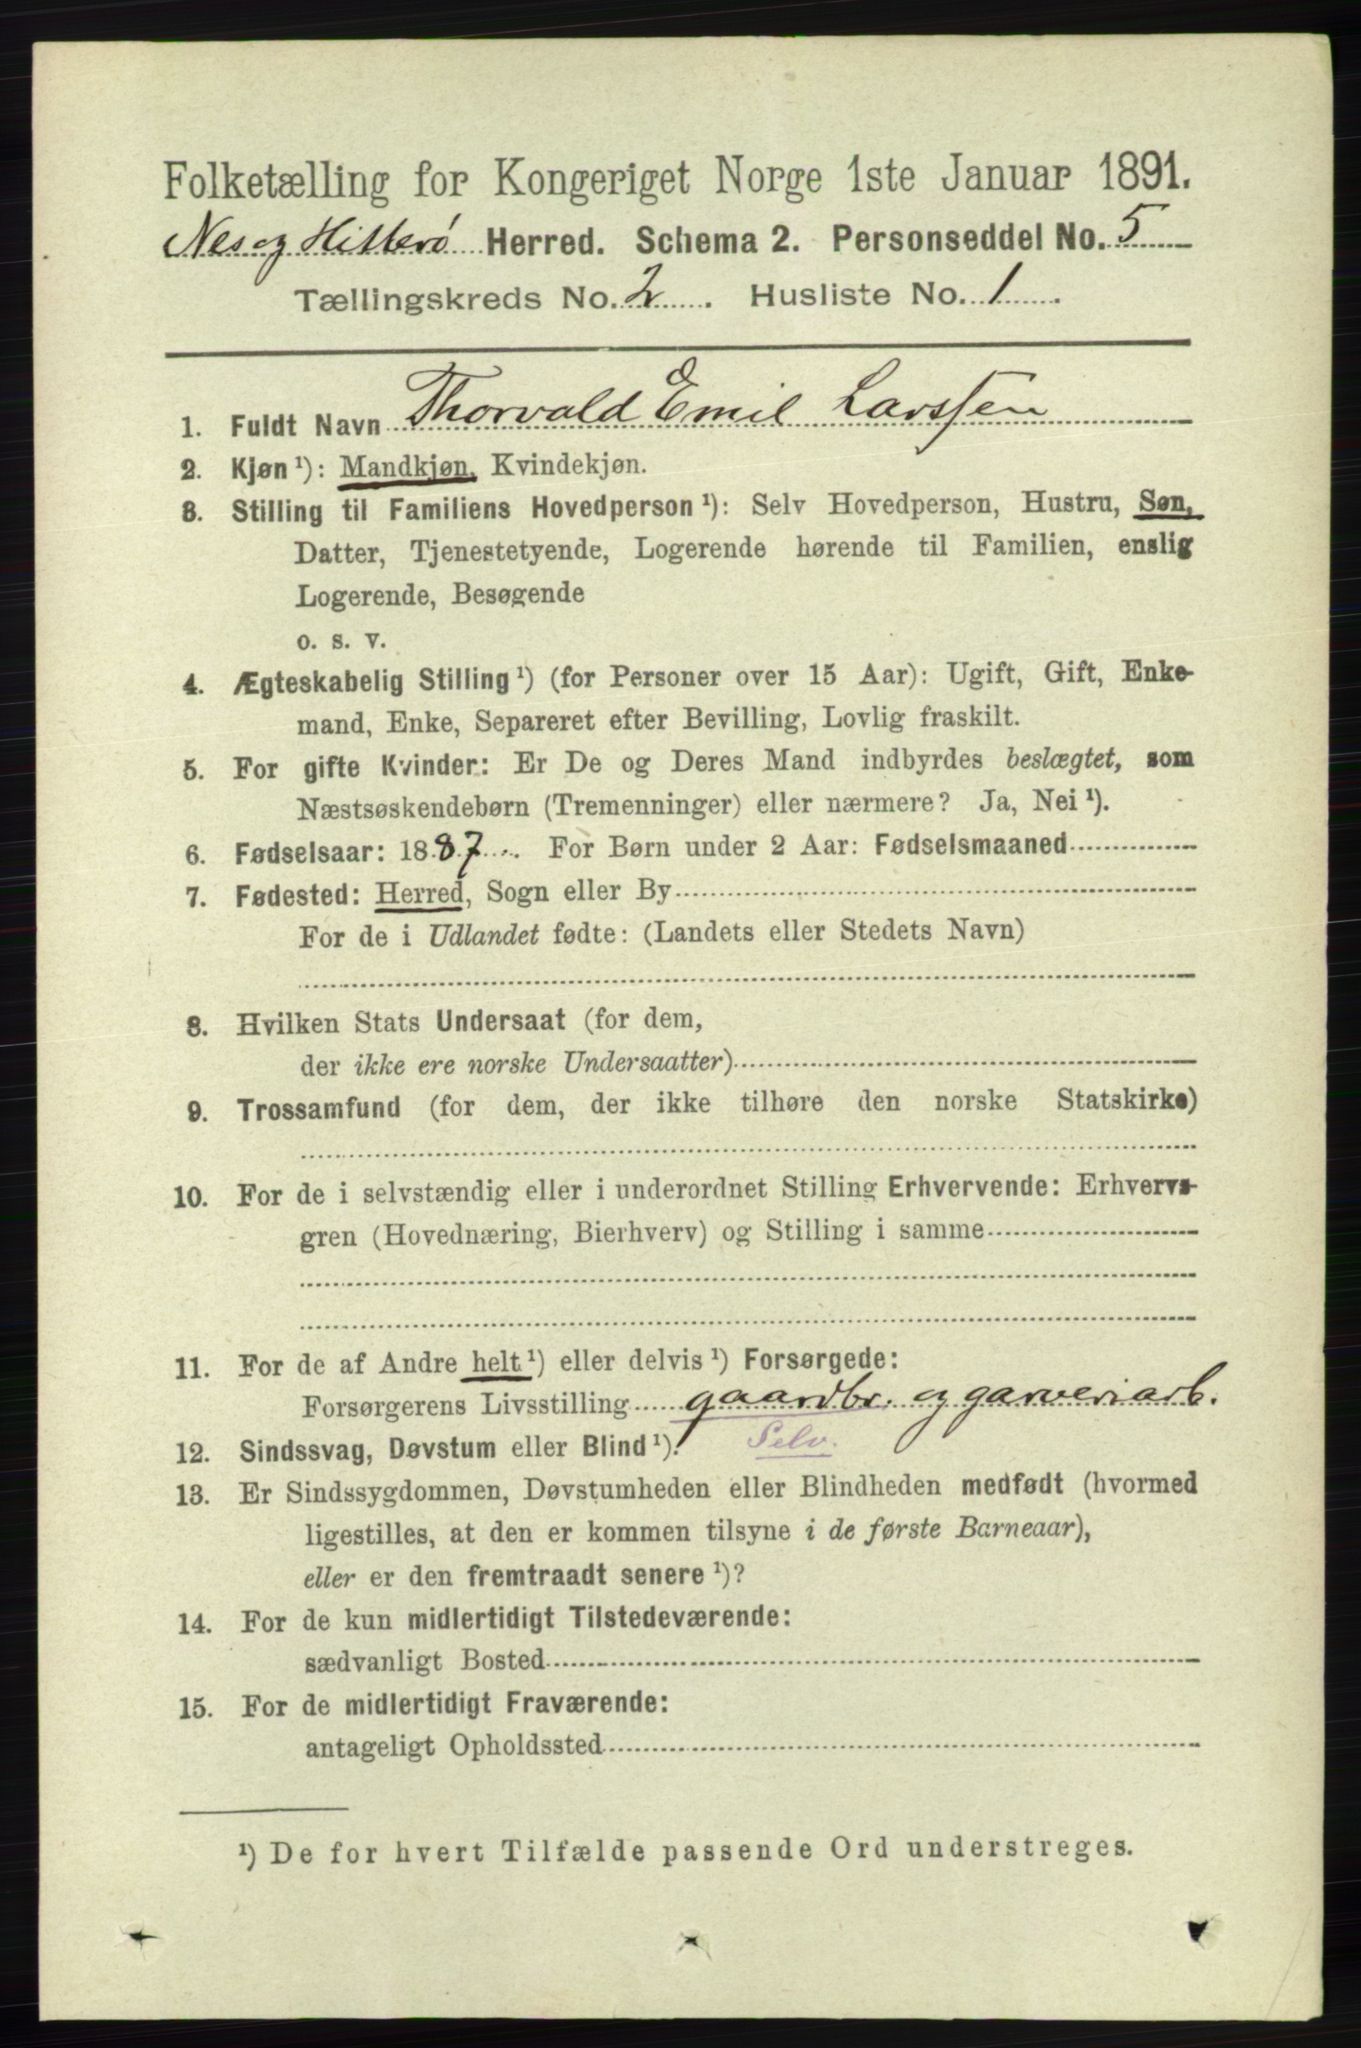 Folketælling for Kongeriget Norge 1ste Januar 1891.
Nes og Hitterø Herred. Schema 2. Personseddel No. 5
Tællingskreds No. 2. Husliste No. 1.
1. Fuldt Navn Thorvald Emil Larssen
2. Kjøn ¹): Mandkjøn, Kvindekjøn.
3. Stilling til Familiens Hovedperson ¹): Selv Hovedperson, Hustru, Søn,
Datter, Tjenestetyende, Logerende hørende til Familien, enslig
Logerende, Besøgende
o. s. v.
4. Ægteskabelig Stilling ¹) (for Personer over 15 Aar): Ugift, Gift, Enke-
mand, Enke, Separeret efter Bevilling, Lovlig fraskilt.
5. For gifte Kvinder: Er De og Deres Mand indbyrdes beslægtet, som
Næstsøskendebørn (Tremenninger) eller nærmere? Ja, Nei ¹).
6. Fødselsaar: 1887. For Børn under 2 Aar: Fødselsmaaned
7. Fødested: Herred, Sogn eller By
For de i Udlandet fødte: (Landets eller Stedets Navn)
8. Hvilken Stats Undersaat (for dem,
der ikke ere norske Undersaatter)
9. Trossamfund (for dem, der ikke tilhøre den norske Statskirke)
10. For de i selvstændig eller i underordnet Stilling Erhvervende: Erhvervs-
gren (Hovednæring, Bierhverv) og Stilling i samme
11. For de af Andre helt ¹) eller delvis ¹) Forsørgede:
Forsørgerens Livsstilling gaardbr. og garveriarb.
12. Sindssvag, Døvstum eller Blind ¹). Selv.
13. Er Sindssygdommen, Døvstumheden eller Blindheden medfødt (hvormed
ligestilles, at den er kommen tilsyne i de første Barneaar),
eller er den fremtraadt senere ¹)?
14. For de kun midlertidigt Tilstedeværende:
sædvanligt Bosted
15. For de midlertidigt Fraværende:
antageligt Opholdssted
¹) De for hvert Tilfælde passende Ord understreges.